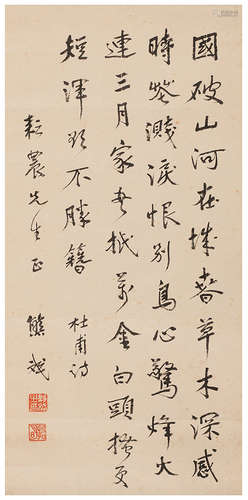 國破山河在城春草木深感
時花濺淚恨別鳥心驚烽火
連三月家書抵萬金白頭搔更
短渾欲不勝簪 杜甫詩
耘農先生正 熊斌